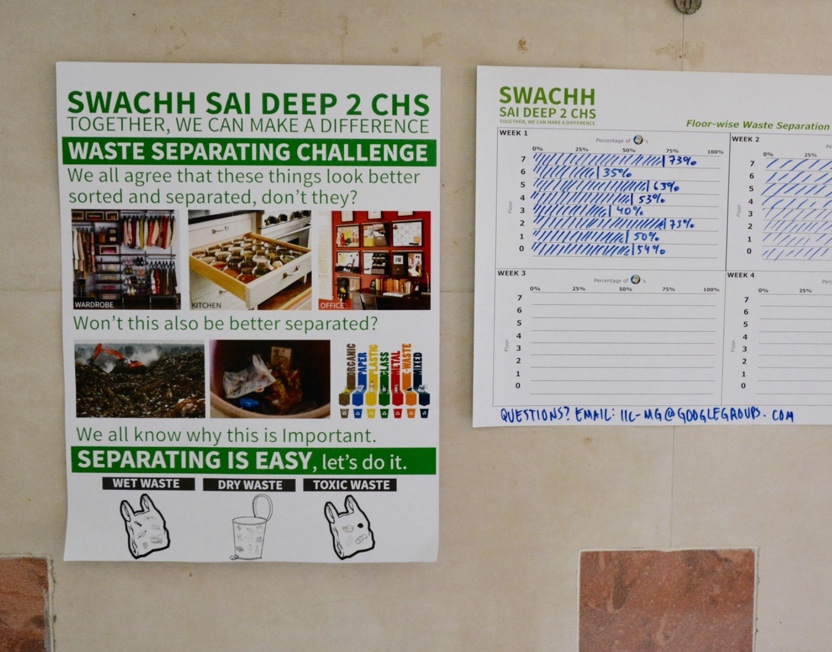 SWACHH SAI DEEP 2 CHS
TOGETHER, WE CAN MAKE A DIFFERENCE
WASTE SEPARATING CHALLENGE
We all agree that these things look better
sorted and separated, don't they?
WARDROBE
KITCHEN
OFFICE
Won't this also be better separated?
ORGANIC
PAPER
PLASTIC
GLASS
METAL
E-WASTE
MIXED
We all know why this is Important.
SEPARATING IS EASY, let's do it.
WET WASTE
DRY WASTE
TOXIC WASTE
SWACHH
SAI DEEP 2 CHS
TOGETHER, WE CAN MAKE A DIFFERENCE
Floor-wise Waste Separation
WEEK 1
Percentage of 's
0% 25% 50% 75% 100%
Floor
7 73%
6 35%
5 63%
4 53%
3 40%
2 73%
1 50%
0 54%
WEEK 2
0%
Floor
7
6
5
4
3
2
1
0
WEEK 3
Percentage of 's
0% 25% 50% 75% 100%
Floor
7
6
5
4
3
2
1
0
WEEK 4
0%
Floor
7
6
5
4
3
2
1
0
QUESTIONS? EMAIL: IIC-MG@GOOGLEGROUPS.COM